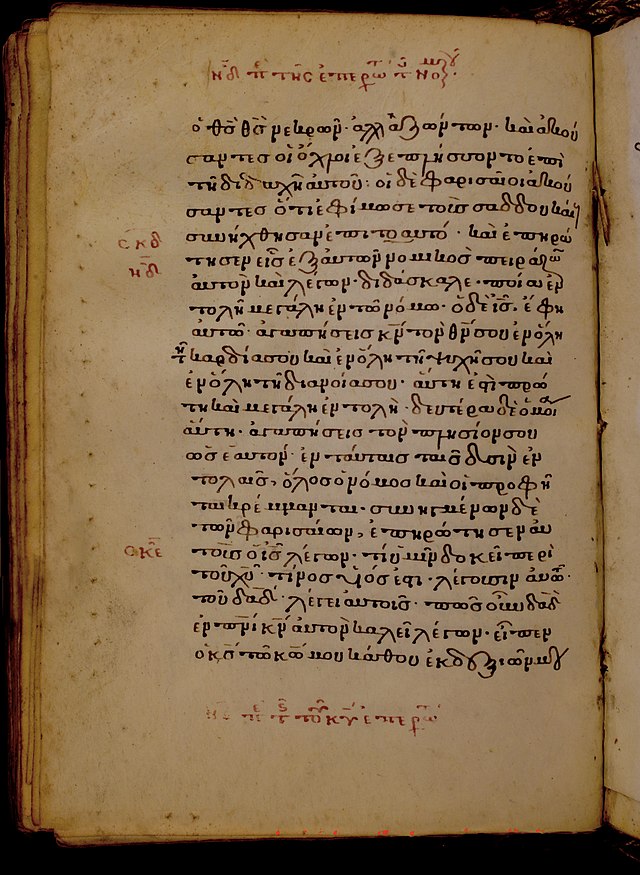 ὁ θ̅ς̅ θ̅ς̅ νεκρῶν· ἀλλὰ ζώντων· καὶ ἀκού
σαντες οἱ ὄχλοι ἐξεπλήσσοντο ἐπὶ
τῆ διδαχῆ αὐτοῦ· οἱ δὲ φαρισαῖοι ἀκού
σαντες ὅτι ἐφίμωσε τοὺς σαδδουκαί
σκδ συνήχθησαν ἐπιτοαυτό· καὶ ἐπηρώ
νδ τησεν εἷς ἐξ αὐτῶν νομικὸς πειράζω
αὐτὸν καὶ λέγων· διδάσκαλε· ποία ἐν
τολὴ μεγάλη ἐν τῶ νόμω· ὁ δὲ ι̅ς̅· ἔφη
αὐτῶ· ἀγαπήσεις κ̅ν̅ τὸν θ̅ν̅ σου ἐν ὅλη
τῆ καρδία σου καὶ ἐν ὅλη τῆ ψυχῆ σου καὶ
ἐν ὅλη τῆ διανοία σου· αὕτη ἐστὶ πρώ
τη καὶ μεγάλη ἐντολή· δευτέρα δὲ ὁμοία
αὕτη· ἀγαπήσεις τὸν πλησίον σου
ὡς ἑαυτόν· ἐν ταύταις ταῖς δυσὶν ἐν
τολαῖς, ὅλος ὁ νόμος καὶ οἱ προφῆ
ται κρέμμανται· συνηγμένων δὲ
τῶν φαρισαίων, ἐπηρώτησεν αὐ
σκε τοῖς ὁ ι̅ς̅ λέγων· τί ὑμῖν δοκεῖ περὶ
τοῦ χ̅υ̅· τίνος υἱός ἐστι· λέγουσιν αὐτῶ·
τοῦ δ̅α̅δ̅· λέγει αὐτοῖς· πῶς οὖν δ̅α̅δ̅
ἐν π̅ν̅ι̅ κ̅ν̅ αὐτὸν καλεῖ λέγων· εἶπεν
ὁ κ̅ς̅ τῶ κ̅ω̅ μου κάθου ἐκ δεξιῶν μου